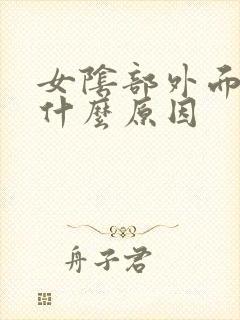 女陰部外而
什麼原因
舟子君